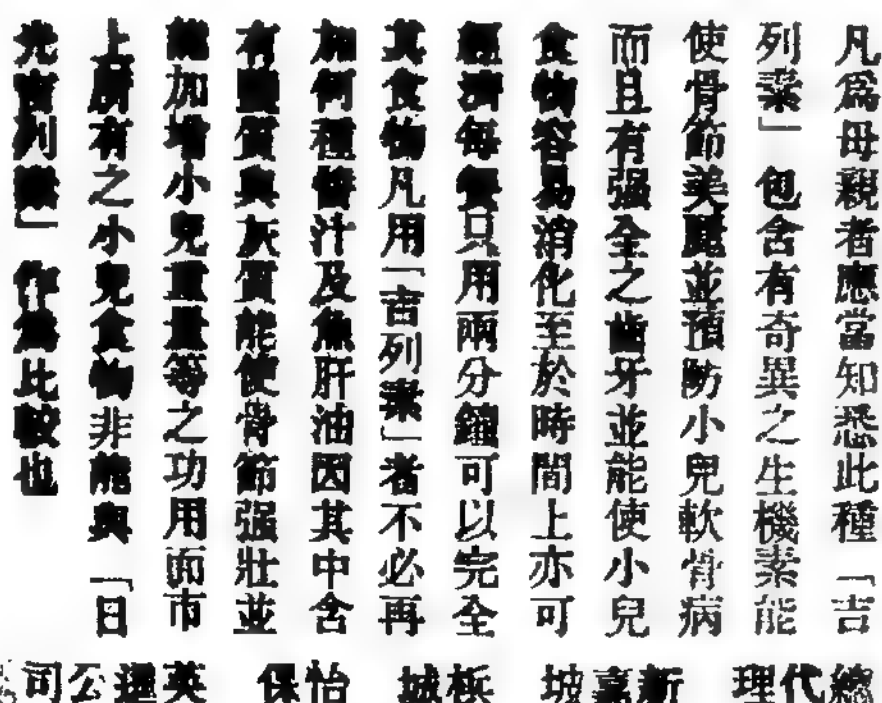 凡爲母親者應當知悉此種「吉
列素」包含有奇異之生機素能
使骨節美麗並預防小兒軟骨病
而且有强全之齒牙並能使小兒
食物容易消化至於時間上亦可
經濟每餐只用兩分鐘可以完全
其食物凡用「吉列素」者不必再
加何種醬汁及魚肝油因其中含
有鹽質與灰質能使骨節强壯並
能加增小兒重量等之功用而市
上所有之小兒食物非能與「日
光吉列素」作爲比較也
總代理 新嘉坡 檳城 怡保 英 公司